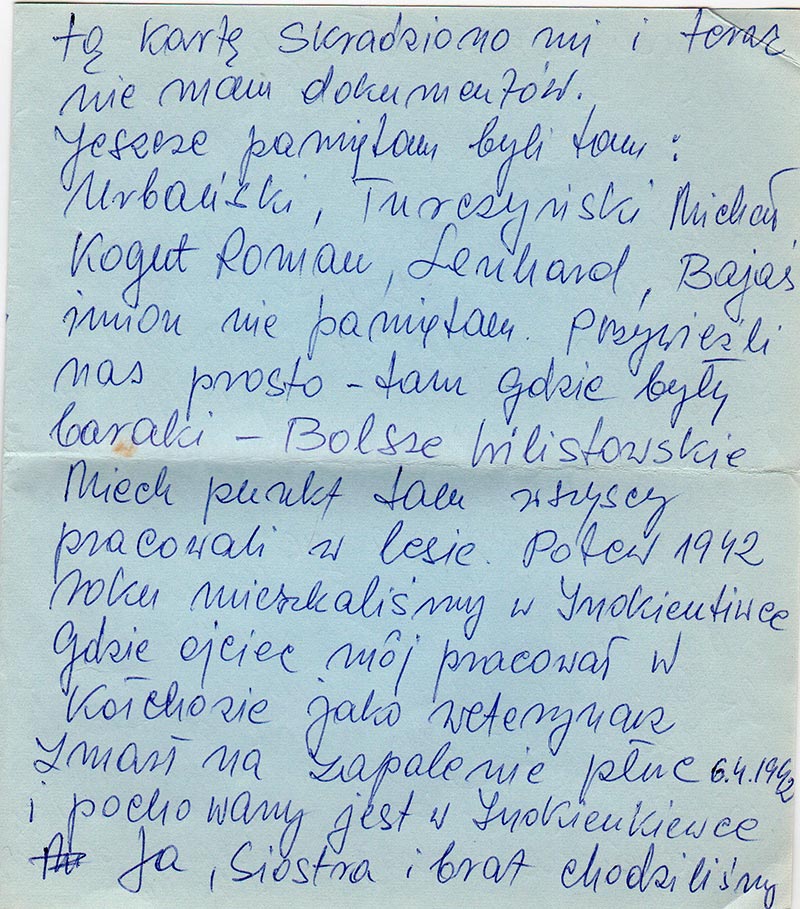 tą kartę skradziono mi i teraz
nie mam dokumentów.
Jeszcze pamiętam byli tam:
Urbański, Turczyński Michał,
Kogut Roman, Lenhard, Bajaś
imion nie pamiętam. Przywieźli
nas prosto – tam gdzie były
baraki – Bolsze Wilistowskie
Miech punkt tam wszyscy
pracowali w lesie. Potem 1942
roku mieszkaliśmy w Inokientiwce
Gdzie ojciec mój pracował w
Kołchozie jako weterynarz
Zmarł na zapalenie płuc 6.4.1942
i pochowany jest w Inokienkiewce
Ja, Siostra i brat chodziliśmy